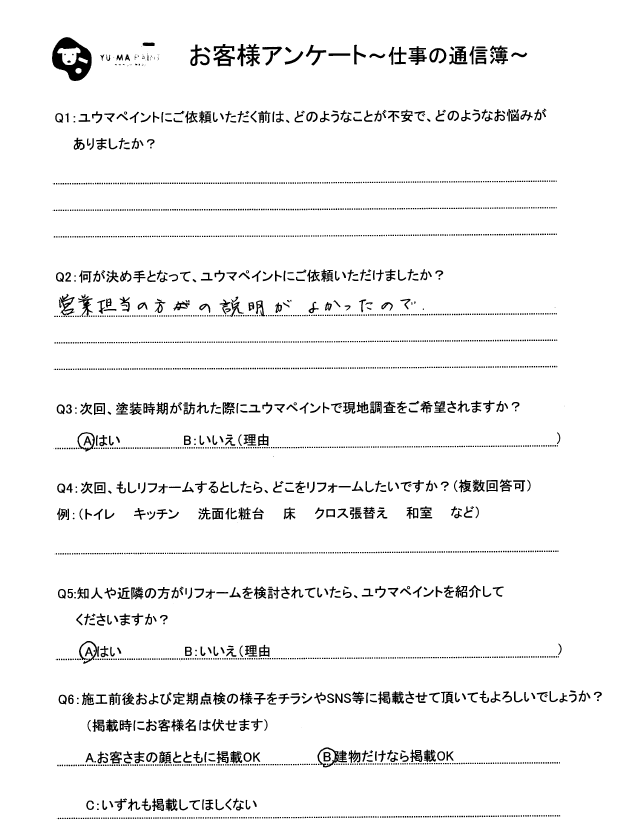 YU-MA PAINT
お客様アンケート～仕事の通信簿～
Q1：ユウマペイントにご依頼いただく前は、どのようなことが不安で、どのようなお悩みが
ありましたか？
Q2：何が決め手となって、ユウマペイントにご依頼いただけましたか？
営業担当の方の説明が よかったので.
Q3：次回、塗装時期が訪れた際にユウマペイントで現地調査をご希望されますか？
A はい B：いいえ（理由 ）
Q4：次回、もしリフォームするとしたら、どこをリフォームしたいですか？（複数回答可）
例：（トイレ キッチン 洗面化粧台 床 クロス張替え 和室 など）
Q5：知人や近隣の方がリフォームを検討されていたら、ユウマペイントを紹介して
くださいますか？
A はい B：いいえ（理由 ）
Q6：施工前後および定期点検の様子をチラシやSNS等に掲載させて頂いてもよろしいでしょうか？
（掲載時にお客様名は伏せます）
A.お客さまの顔とともに掲載OK B 建物だけなら掲載OK
C：いずれも掲載してほしくない